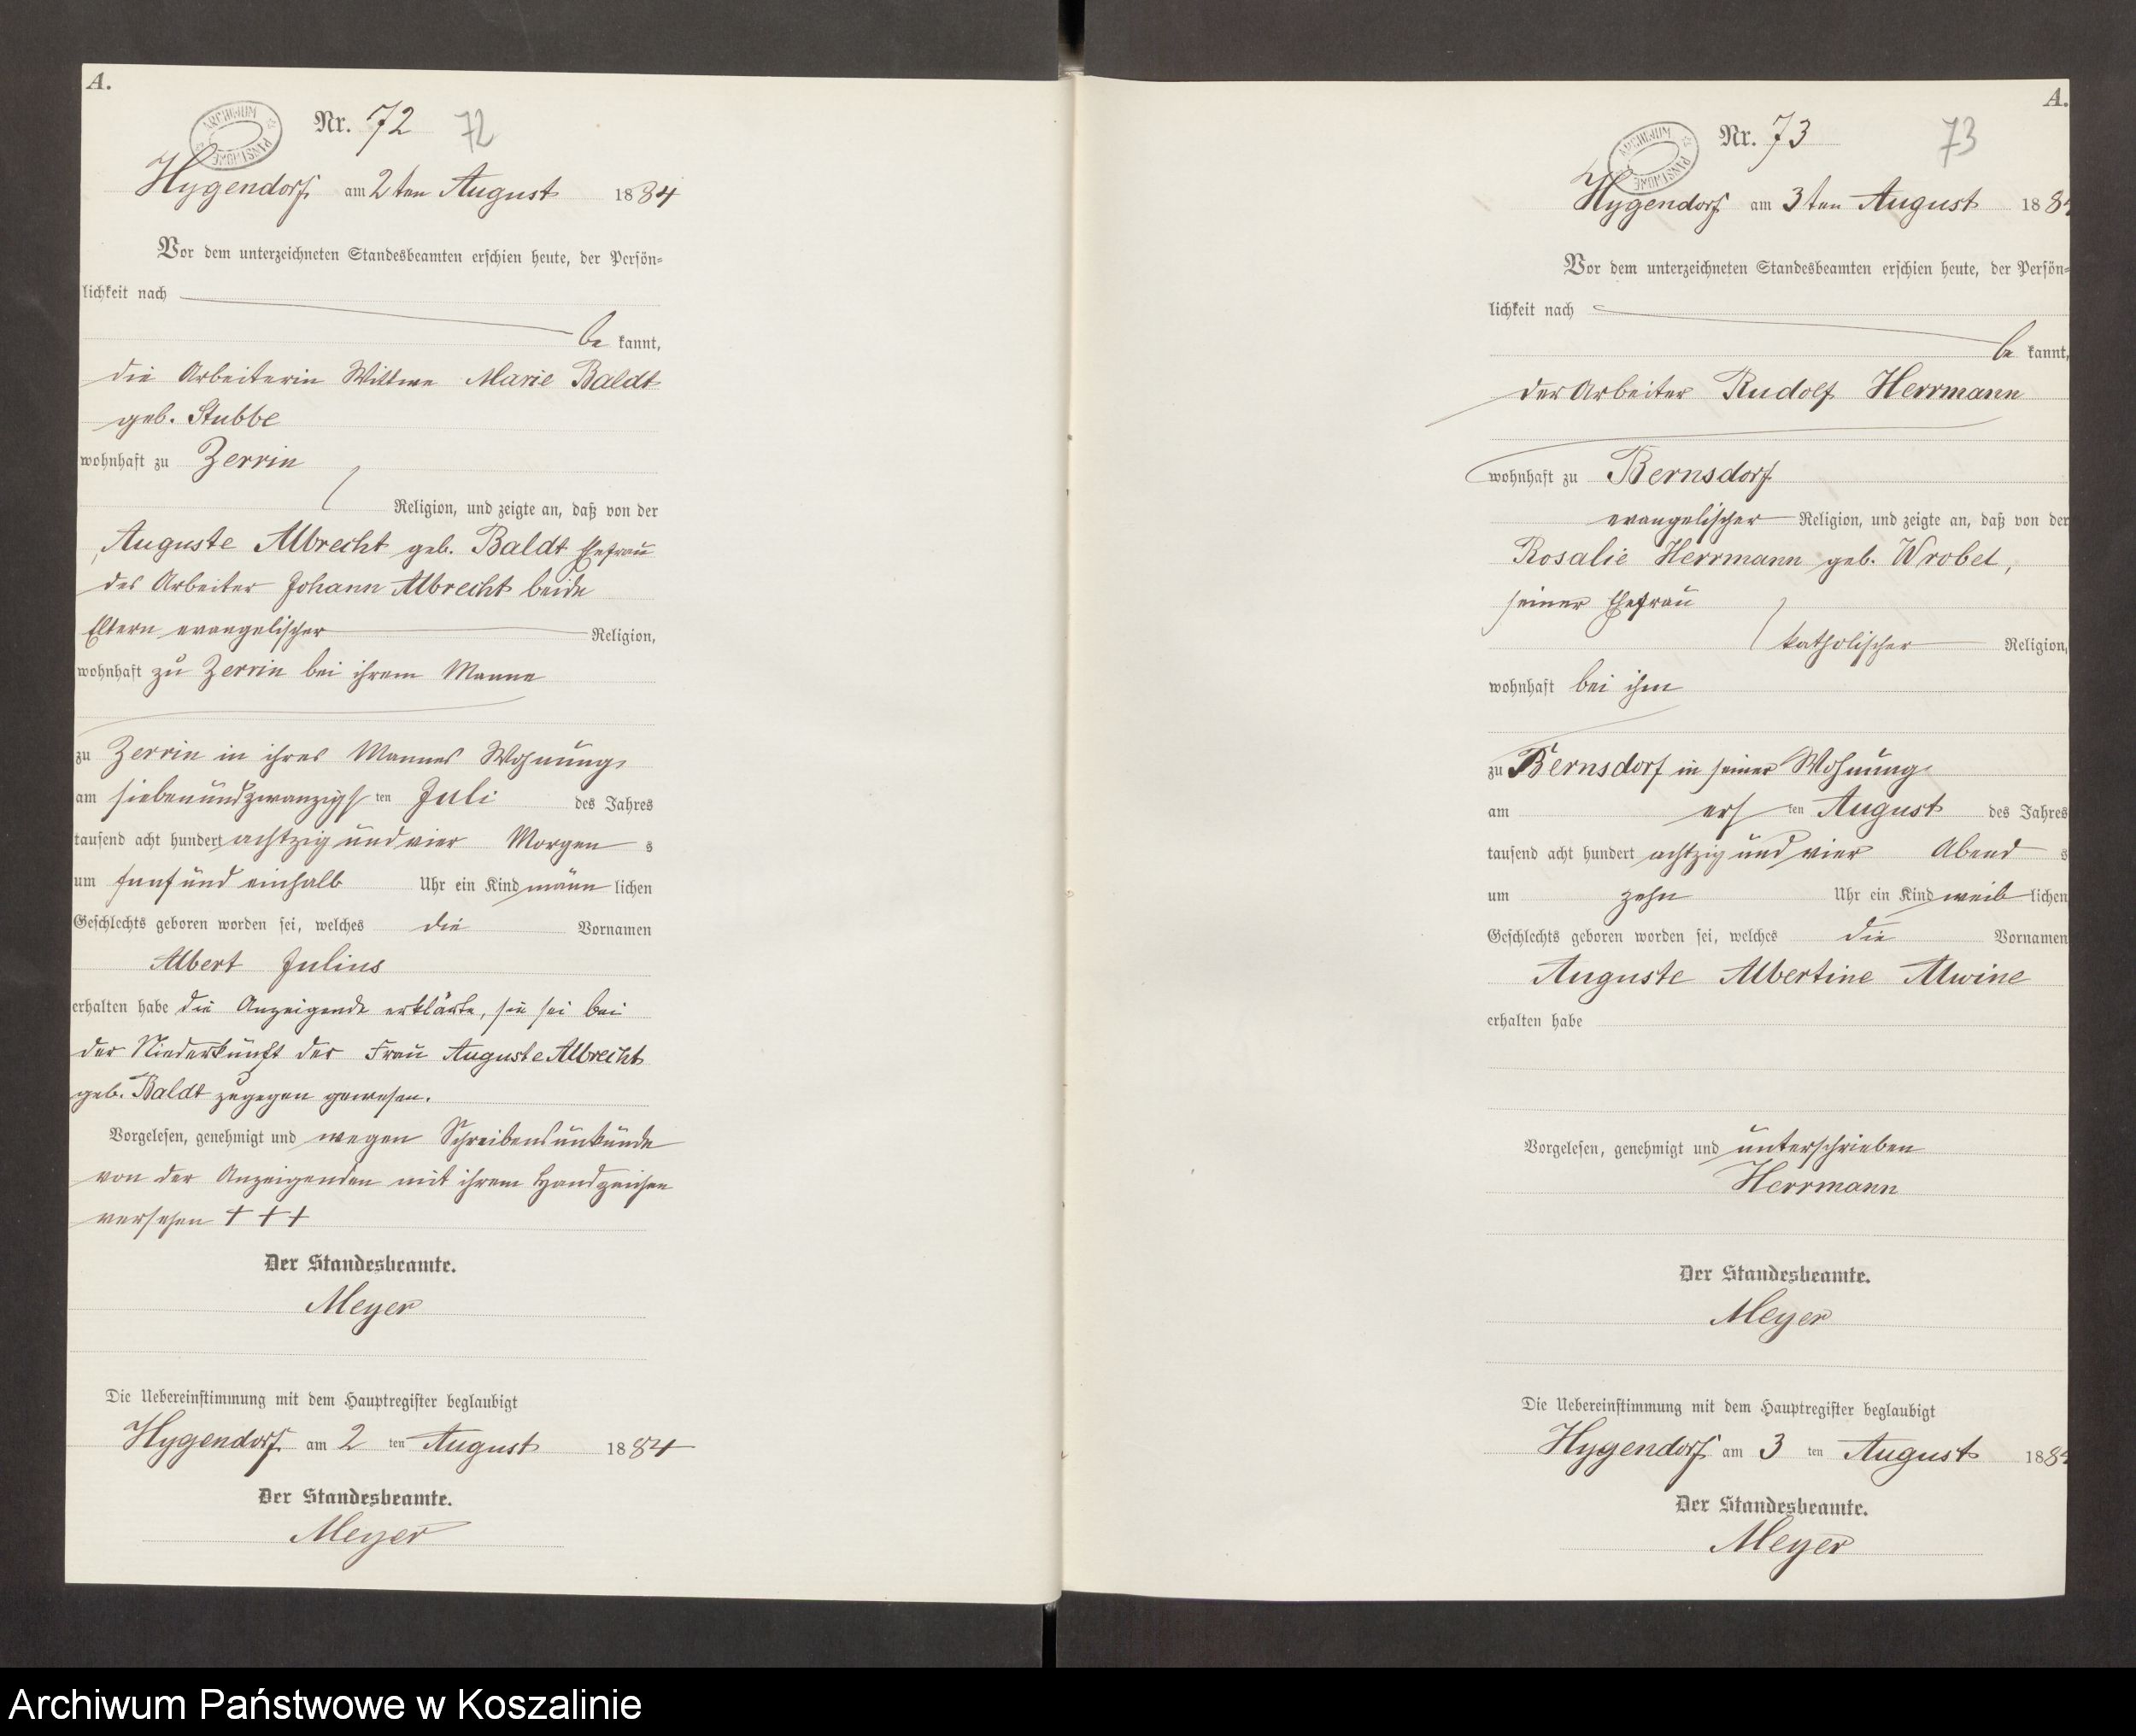 A.
Nr. 72 72
ARCHIWUM PAŃSTWOWE
Hygendorf am 2ten August 1884
Vor dem unterzeichneten Standesbeamten erschien heute, der Persön-
lichkeit nach
be kannt,
die Arbeiterin Wittwe Marie Baldt
geb. Stubbe
wohnhaft zu Zerrin
Religion, und zeigte an, daß von der
Auguste Albrecht geb. Baldt Ehefrau
des Arbeiter Johann Albrecht beide
Eltern evangelischer Religion,
wohnhaft zu Zerrin bei ihrem Manne
zu Zerrin in ihres Mannes Wohnung
am siebenundzwanzigs ten Juli des Jahres
tausend acht hundert achtzig und vier Morgen s
um fünf und einhalb Uhr ein Kind männ lichen
Geschlechts geboren worden sei, welches die Vornamen
Albert Julius
erhalten habe die Anzeigende erklärte, sie sei bei
der Niederkunft der Frau Auguste Albrecht
geb. Baldt zugegen gewesen.
Vorgelesen, genehmigt und wegen Schreibensunkunde
von der Anzeigenden mit ihrem Handzeichen
versehen + + +
Der Standesbeamte.
Meyer
Die Uebereinstimmung mit dem Hauptregister beglaubigt
Hygendorf am 2 ten August 1884
Der Standesbeamte.
Meyer
A.
Nr. 73 73
ARCHIWUM PAŃSTWOWE
Hygendorf am 3ten August 188
Vor dem unterzeichneten Standesbeamten erschien heute, der Persön-
lichkeit nach
be kannt,
der Arbeiter Rudolf Herrmann
wohnhaft zu Bernsdorf
evangelischer Religion, und zeigte an, daß von der
Rosalie Herrmann geb. Wrobel,
seiner Ehefrau
katholischer Religion,
wohnhaft bei ihm
zu Bernsdorf in seiner Wohnung
am ers ten August des Jahres
tausend acht hundert achtzig und vier Abend s
um zehn Uhr ein Kind weib lichen
Geschlechts geboren worden sei, welches die Vornamen
Auguste Albertine Alwine
erhalten habe
Vorgelesen, genehmigt und unterschrieben
Herrmann
Der Standesbeamte.
Meyer
Die Uebereinstimmung mit dem Hauptregister beglaubigt
Hygendorf am 3 ten August 188
Der Standesbeamte.
Meyer
Archiwum Państwowe w Koszalinie